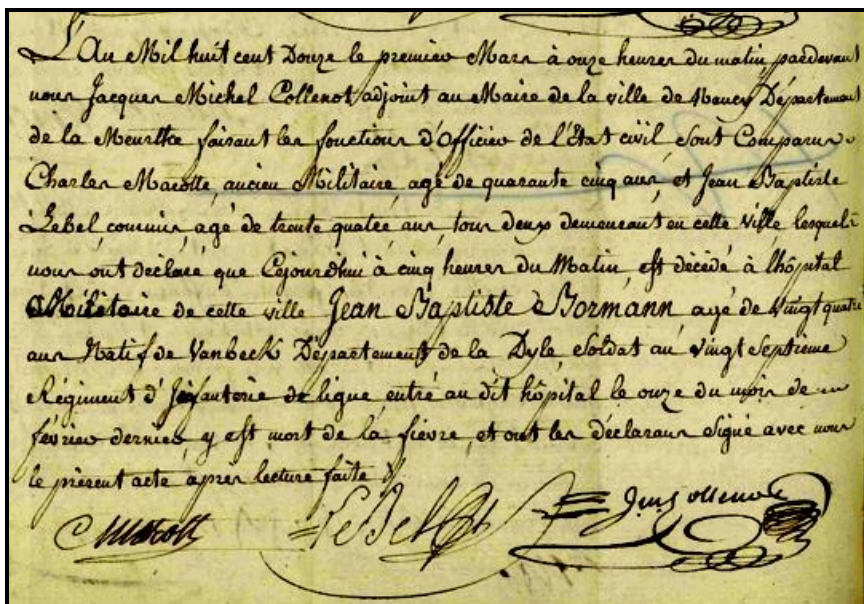 L'An Mil huit cent Douze le premier Mars à onze heures du matin, pardevant
nous Jacques Michel Collenot adjoint au Maire de la ville de Nancy Département
de la Meurthe faisant les fonctions d'Officier de l'État civil, sont Comparus
Charles Marotte, ancien Militaire, agé de quarante cinq ans, et Jean Baptiste
Lebel, commis, agé de trente quatre ans, tous deux demeurant en cette ville lesquels
nous ont déclaré que Cejourdhui à cinq heures du Matin, est décédé à l'hôpital
Militaire de cette ville Jean Baptiste Bormann agé de vingt quatre
ans Natif de Vanbeck Département de la Dyle, Soldat au vingt Septième
Régiment d'Infanterie de ligne, entré au dit hôpital le onze du mois de
février dernier y est mort de la fièvre, et ont les déclarans signé avec nous
le présent acte, après lecture faite
CMarott LeBel